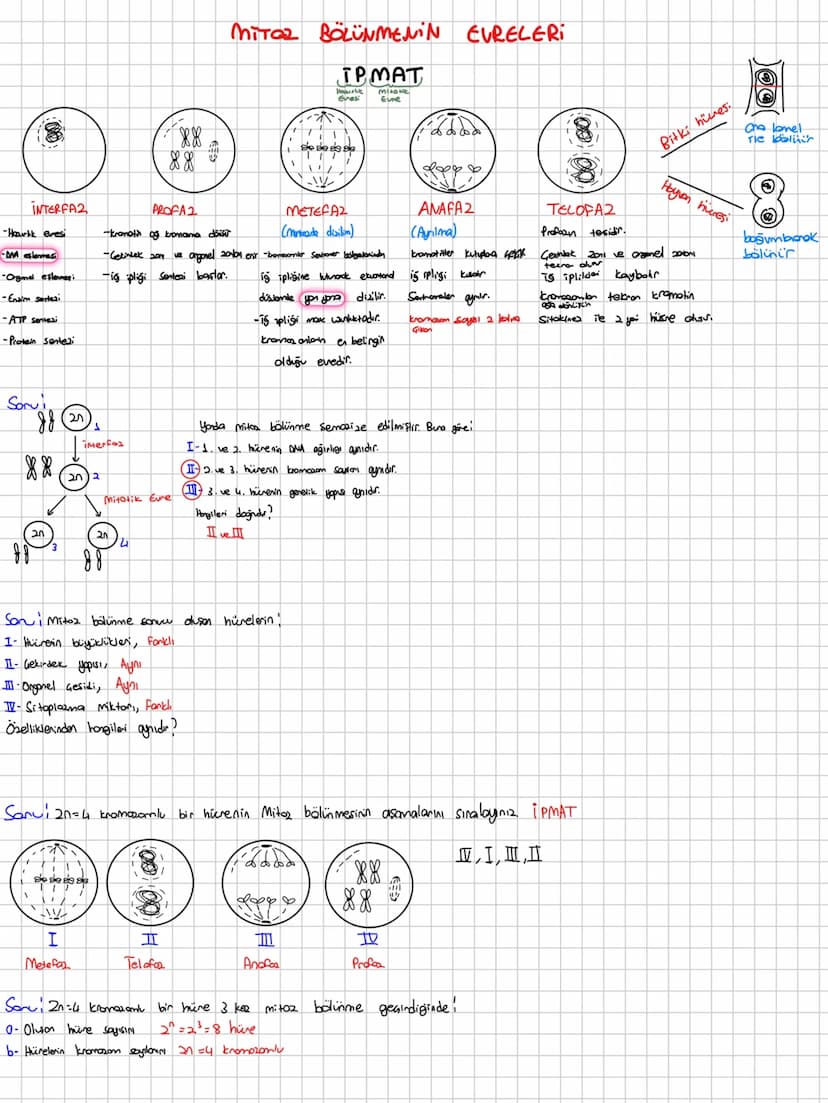 MİTOZ BÖLÜNMENİN EVRELERİ
İPMAT
Hazırlık Evresi
Mitotik Evre
İNTERFAZ
-Hazırlık evresi
-DNA eşlenmesi
-Organel eşlenmesi
-Enzim sentezi
-ATP sentezi
-Protein sentezi
PROFAZ
-kromatin ağ kromozoma dönüşür
-Çekirdek zarı ve organel zarları erir
-iğ ipliği sentezi başlar.
METEFAZ
(Merkezde dizilim)
-kromozomlar sentromer bölgelerinden
iğ ipliğine tutunarak ekvatoral
düzlemde yan yana dizilir.
-iğ ipliği max uzunluktadır.
kromozomların en belirgin
olduğu evredir.
ANAFAZ
(Ayrılma)
kromatitler kutuplara çekilir
iğ ipliği kısalır
Sentromerler ayrılır.
kromozom sayısı 2 katına
çıkar
TELOFAZ
Profazın tersidir.
Çekirdek zarı ve organel zarları
tekrar oluşur
iğ iplikleri kaybolur
kromozomlar tekrar kromatin
ağa dönüşür
Sitokinez ile 2 yeni hücre oluşur.
Bitki hücresi
Ara lamel
ile bölünür
Hayvan hücresi
boğumlanarak
bölünür
Soru:
2n 1
interfaz
2n 2
Mitotik Evre
2n 3
2n 4
Yanda mitoz bölünme şematize edilmiştir. Buna göre;
I-1. ve 2. hücrenin DNA ağırlığı aynıdır.
II-2. ve 3. hücrenin kromozom sayıları aynıdır.
III-3. ve 4. hücrenin genetik yapısı aynıdır.
Hangileri doğrudur?
II ve III
Soru: Mitoz bölünme sonucu oluşan hücrelerin;
I- Hücrenin büyüklükleri, Farklı
II- Çekirdek yapısı, Aynı
III- Organel çeşidi, Aynı
IV- Sitoplazma miktarı, Farklı
Özelliklerinden hangileri aynıdır?
Soru: 2n=4 kromozomlu bir hücrenin Mitoz bölünmesinin aşamalarını sıralayınız. İPMAT
IV, I, III, II
I
Metefaz
II
Telofaz
III
Anafaz
IV
Profaz
Soru: 2n=4 kromozomlu bir hücre 3 kez mitoz bölünme geçirdiğinde;
a- Oluşan hücre sayısını 2ⁿ=2³=8 hücre
b- Hücrelerin kromozom sayılarını 2n=4 kromozomlu